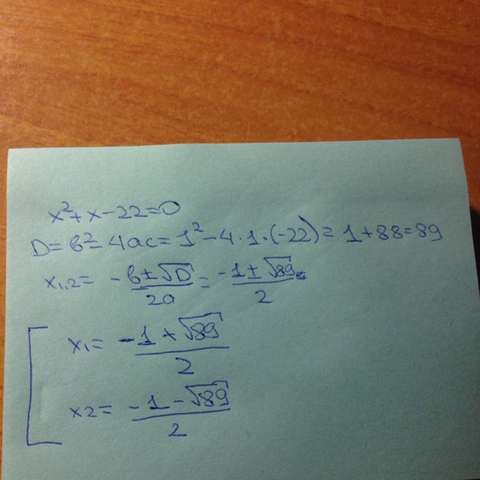 x²+x-22=0
D=b²-4ac=1²-4·1·(-22)=1+88=89
x1,2=(-b±√D)/2a=(-1±√89)/2
x1=(-1+√89)/2
x2=(-1-√89)/2